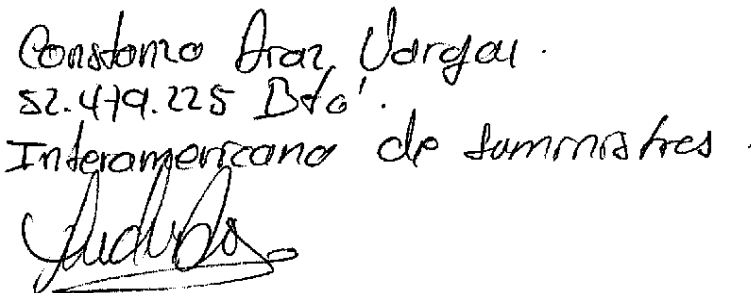 Constanza Diaz Vargas.
52.479.225 Bta'.
Interamericana de suministros.